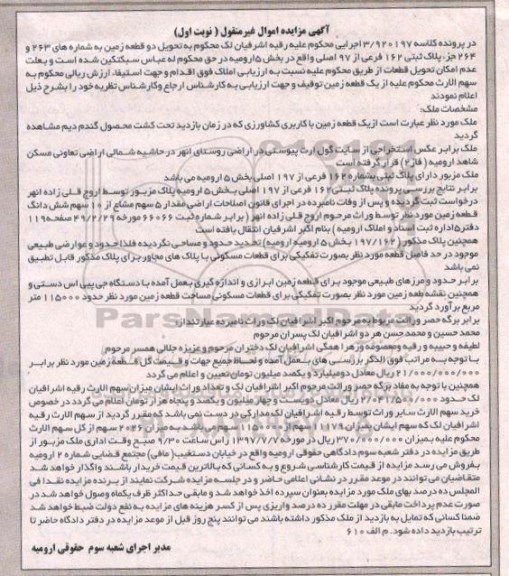 آگهی مزایده اموال غیرمنقول ( نوبت اول)
در پرونده کلاسه ۳/۹۲۰۱۹۷ اجرایی محکوم علیه رقیه اشرفیان لک محکوم به تحویل دو قطعه زمین به شماره های ۲۶۳ و
۲۶۴ جزء پلاک ثبتی ۱۶۲ فرعی از ۹۷ اصلی واقع در بخش ۵ ارومیه در حق محکوم له عباس سبکتکین شده است و بعلت
عدم امکان تحویل قطعات از طریق محکوم علیه نسبت به ارزیابی املاک فوق اقدام و جهت استیفاء ارزش ریالی محکوم به
سهم الارث محکوم علیه از یک قطعه زمین توقیف و جهت ارزیابی به کارشناس ارجاع و کارشناس نظریه خود را بشرح ذیل
اعلام نمودند
مشخصات ملک:
ملک مورد نظر عبارت است از یک قطعه زمین با کاربری کشاورزی که در زمان بازدید تحت کشت محصول گندم دیم مشاهده
گردید
ملک برابر عکس استخراجی از سایت گوگل ارث پیوستی در اراضی روستای انهر در حاشیه شمالی اراضی تعاونی مسکن
شاهد ارومیه ( فاز ۲) قرار گرفته است
ملک مزبور دارای پلاک ثبتی بشماره ۱۶۲ فرعی از ۱۹۷ اصلی بخش ۵ ارومیه می باشد
برابر نتایج بررسی پرونده پلاک ثبتی ۱۶۲ فرعی از ۱۹۷ اصلی بخش ۵ ارومیه پلاک مزبور توسط اروج قلی زاده انهر
درخواست ثبت گردیده و پس از وفات نامبرده در اجرای قانون اصلاحات اراضی مقدار ۵ سهم مشاع از ۱۰ سهم شش دانگ
قطعه زمین مورد نظر توسط وراث مرحوم اروج قلی زاده انهر ( برابر شماره ثبت ۶۶۰۶۶ مورخه ۴۹/۲/۲۹ صفحه ۱۱۹
دفتر ۵ اداره ثبت اسناد و املاک ارومیه ) بنام اکبر اشرفیان انتقال یافته است
همچنین پلاک مذکور (۱۹۷/۱۶۲ بخش ۵ ارومیه ارومیه) تحدید حدود و مساحی نگردیده فلذا حدود و عوارضی طبیعی
موجود در حد فاصل قطعه مورد نظر بصورت تفکیکی برای قطعات مسکونی با پلاک های مجاور برای پلاک مذکور قابل تطبیق
نمی باشد
برابر حدود و مرزهای طبیعی موجود برای قطعه زمین ابرازی و اندازه گیری بعمل آمده با دستگاه جی پی اس دستی و
همچنین نقشه قطعه زمین مورد نظر بصورت تفکیکی برای قطعات مسکونی مساحت قطعه زمین مورد نظر حدود ۱۱۵۰۰۰ متر
مربع برآورد گردید
برابر برگه حصر وراثت مربوط به مرحوم اکبر اشرافیان لک وراث نامبرده عبارتنداز:
محمد حسین و محمد حسن هر دو اشرافیان لک پسران مرحوم
لطیفه و حبیبه و رقیه و معصومه و زهرا همگی اشرافیان لک دختران مرحوم و عزیزه جلالی همسر مرحوم
با توجه به مراتب فوق الذکر بررسی های بعمل آمده و لحاظ جمیع جهات و قیمت کل قطعه زمین مورد نظر برابر
۲۱/۰۰۰/۰۰۰/۰۰۰ ریال معادل دو میلیارد و یکصد میلیون تومان تعیین و اعلام می گردد
همچنین با توجه به مفاد برگه حصر وراثت مرحوم اکبر اشرافیان لک و تعداد وراث ایشان میزان سهم الارث رقیه اشرافیان
لک حدود ۲/۰۴۱/۵۰۰/۰۰۰ ریال معادل دویست و چهار میلیون و یکصد و پنجاه هزار تومان اعلام می گردد در خصوص
خرید سهم الارث سایر وراث توسط رقیه اشرافیان لک مدارکی در دست نمی باشد که مقرر گردید از سهم الارث رقیه
اشرافیان لک که سهم ایشان میزان ۱۱۱۷۹ سهم از ۱۱۵۰۰۰ سهم می باشد به میزان ۲۰۲۶ سهم از کل سهم الارث
محکوم علیه بمیزان ۳۷۰/۰۰۰/۰۰۰ ریال در مورخه ۱۳۹۷/۷/۷ راس ساعت ۹/۳۰ صبح وقت اداری ملک مزبور از
طریق مزایده در دفتر شعبه سوم دادگاهی حقوقی ارومیه واقع در خیابان دستغیب( مافی) مجتمع قضایی شماره ۲ ارومیه
بفروش می رسد مزایده از قیمت کارشناسی شروع و به کسانی که بالاترین قیمت خریدار باشند واگذار خواهد شد
متقاضیان می توانند در موعد مقرر در نشانی اعلامی حاضر و در جلسه مزایده شرکت نمایند از برنده مزایده نقدا فی
المجلس ده درصد بهای ملک مورد مزایده بعنوان سپرده اخذ خواهد شد و مابقی حداکثر ظرف یکماه وصول خواهد شد در
صورت عدم پرداخت مابقی در مهلت مقرر ده درصد واریزی پس از کسر هزینه های مزایده به نفع دولت ضبط خواهد شد
ضمنا کسانی که تمایل به بازدید از ملک مذکور داشته باشند می توانند پنج روز قبل از موعد مزایده در دفتر دادگاه حاضر تا
ترتیب بازدید داده شود. م الف ۶۱۰
مدیر اجرای شعبه سوم حقوقی ارومیه